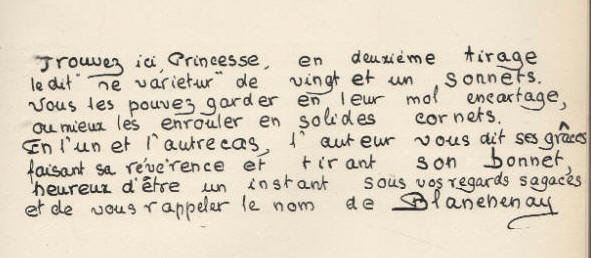 Trouvez ici, Princesse, en deuxième tirage
le dit "ne varietur" de vingt et un sonnets.
Vous les pouvez garder en leur mol encartage,
ou mieux les enrouler en solides cornets.
En l'un et l'autre cas, l'auteur vous dit ses grâces
faisant sa révérence et tirant son bonnet,
heureux d'être un instant sous vos regards sagaces
et de vous rappeler le nom de Blanchenay